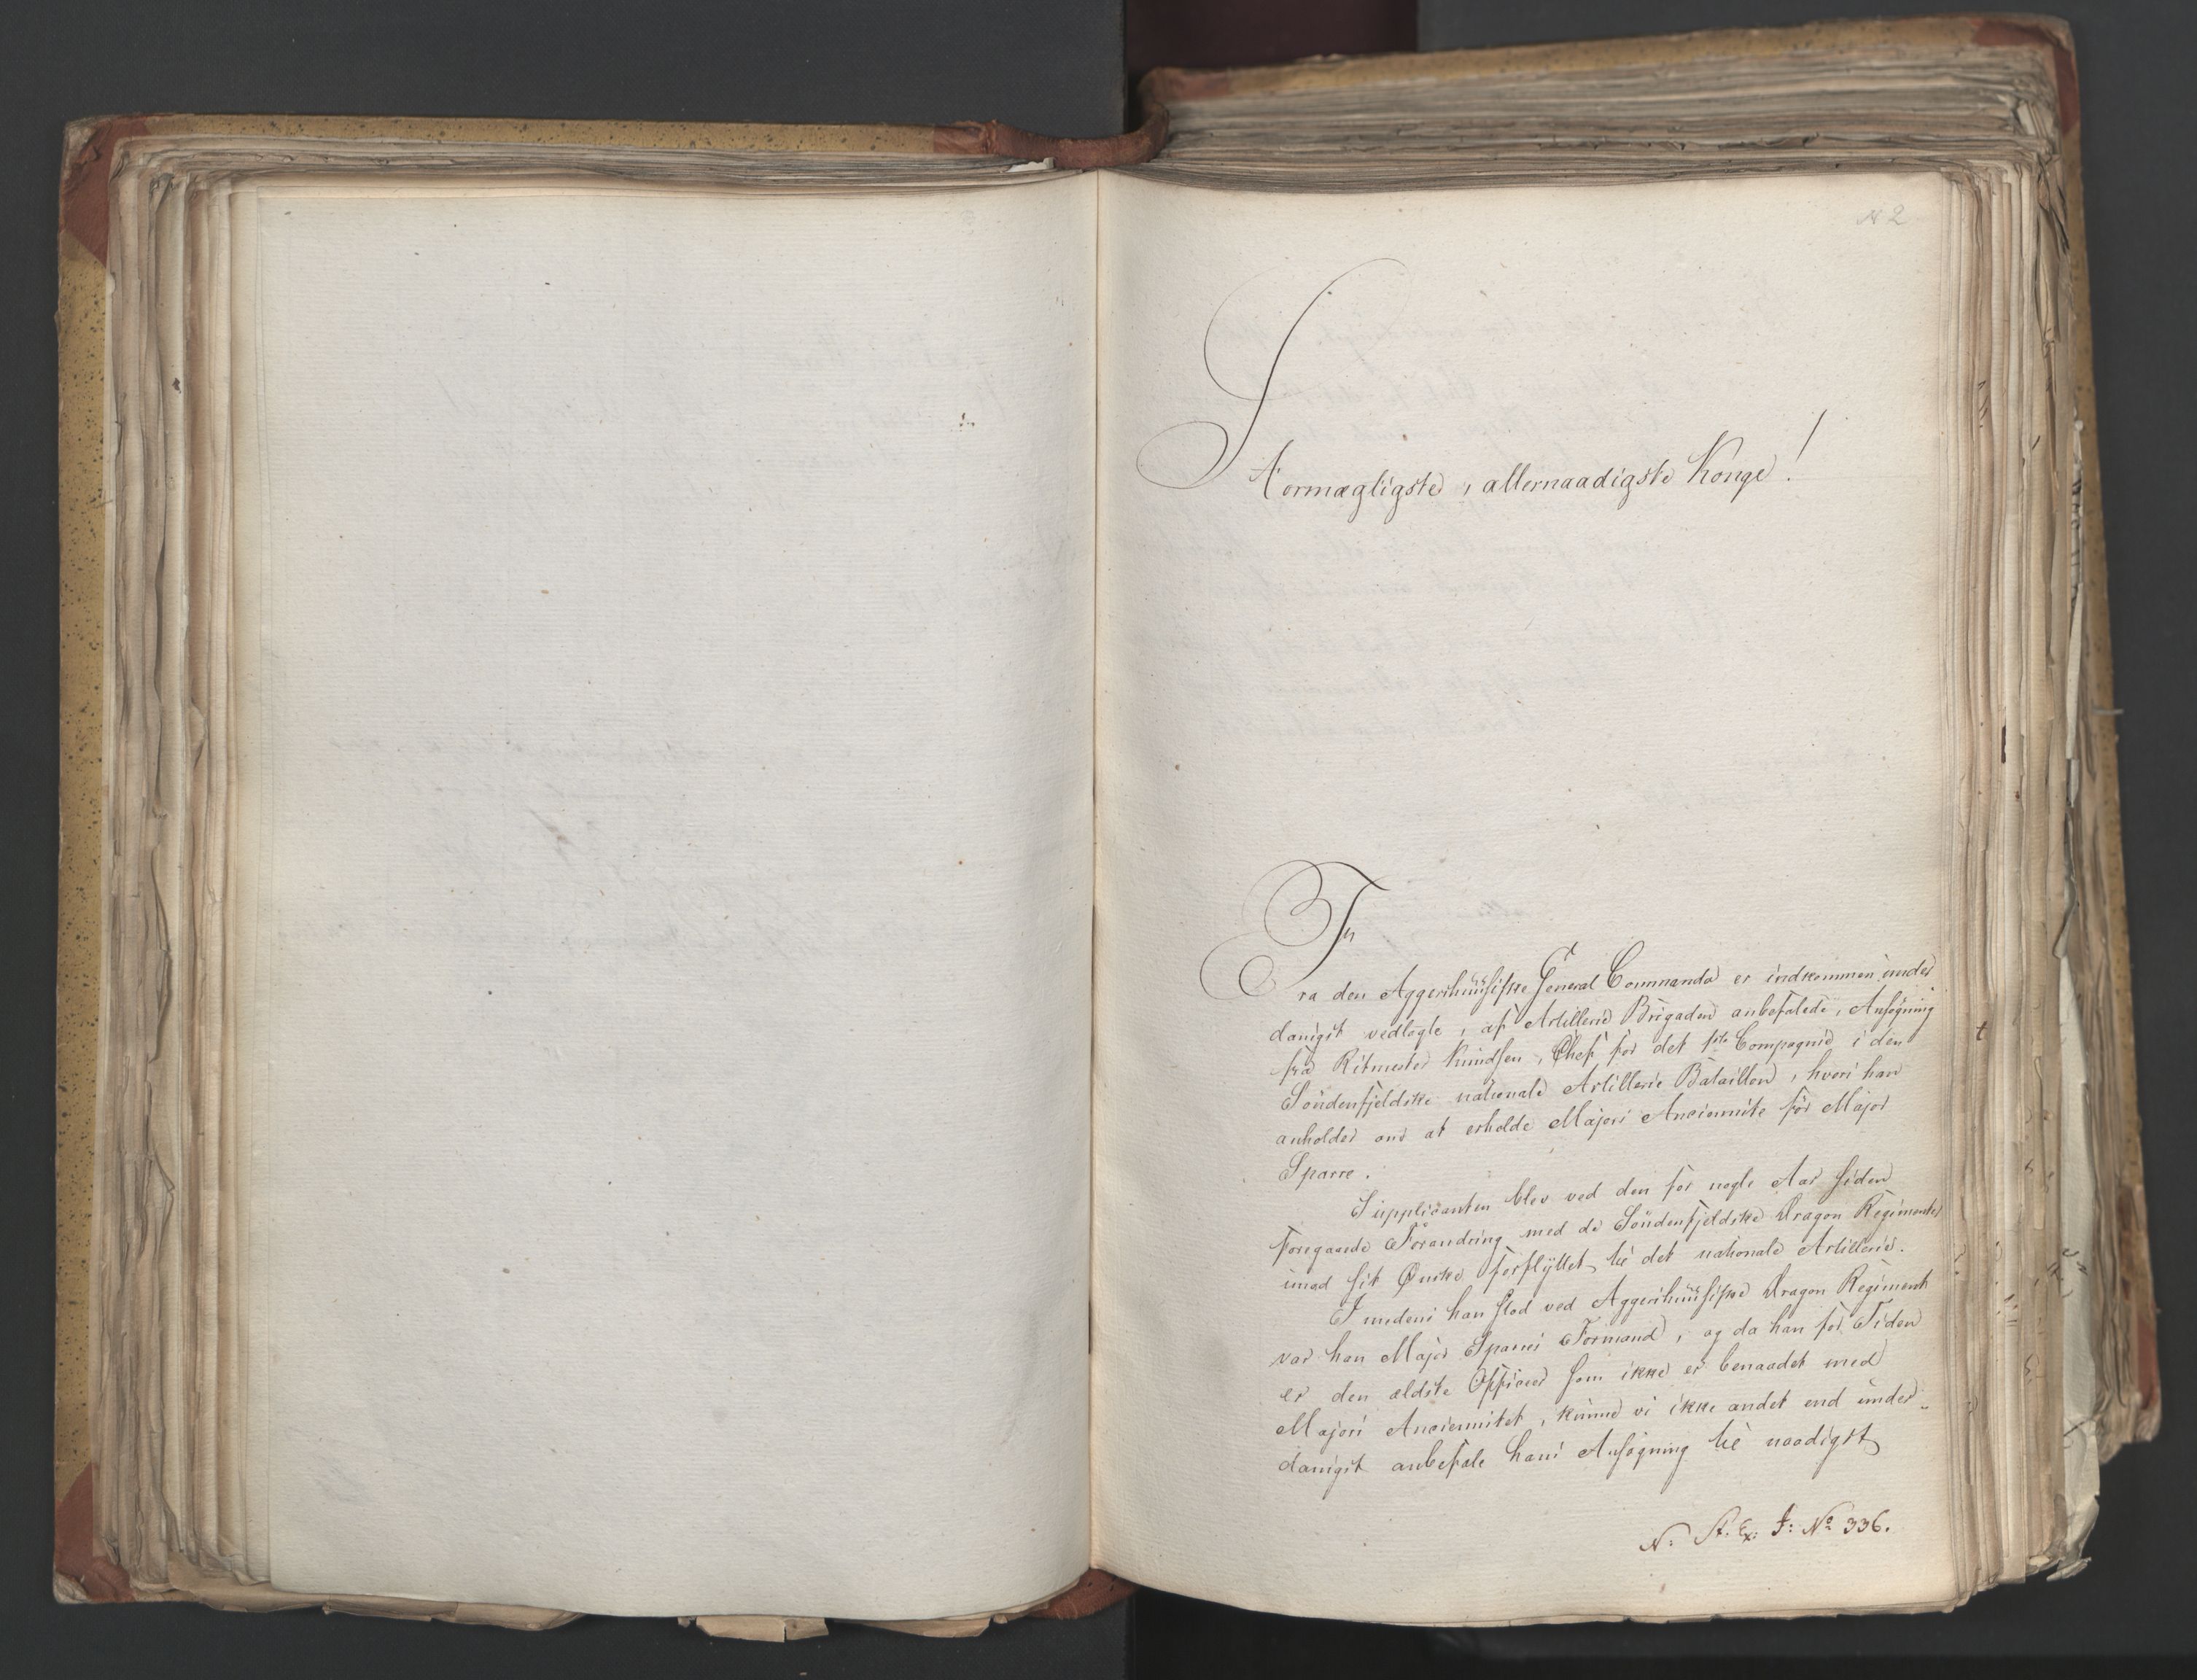 N 2
Stormægtigste, allernaadigste Konge!
Fra den Aggershuusiske General Commando er indkommen under
danigst vedlagte, af Artillerie Brigaden anbefalede, Ansøgning
fra Ritmester Knudsen, Chef for det 1ste Compagnie i den
Søndenfjeldske nationale Artillerie Bataillon, hvori han
anholder om at erholde Majors Anciennite før Major
Sparre.
Supplicanten blev ved den for nogle Aar siden
foregaaede Forandring med de Søndenfjeldske Dragon Regimenter
imod sit Ønske forflyttet til det nationale Artillerie.
I medens han stod ved Aggershuusiske Dragon Regiment
var han Major Sparres Formand, og da han for Tiden
er den ældste Officeer som ikke er benaadet med
Majors Anciennitet, kunne vi ikke andet end under-
danigst anbefale hans Ansøgning til naadigst
N. St. Ex: J: No 336.